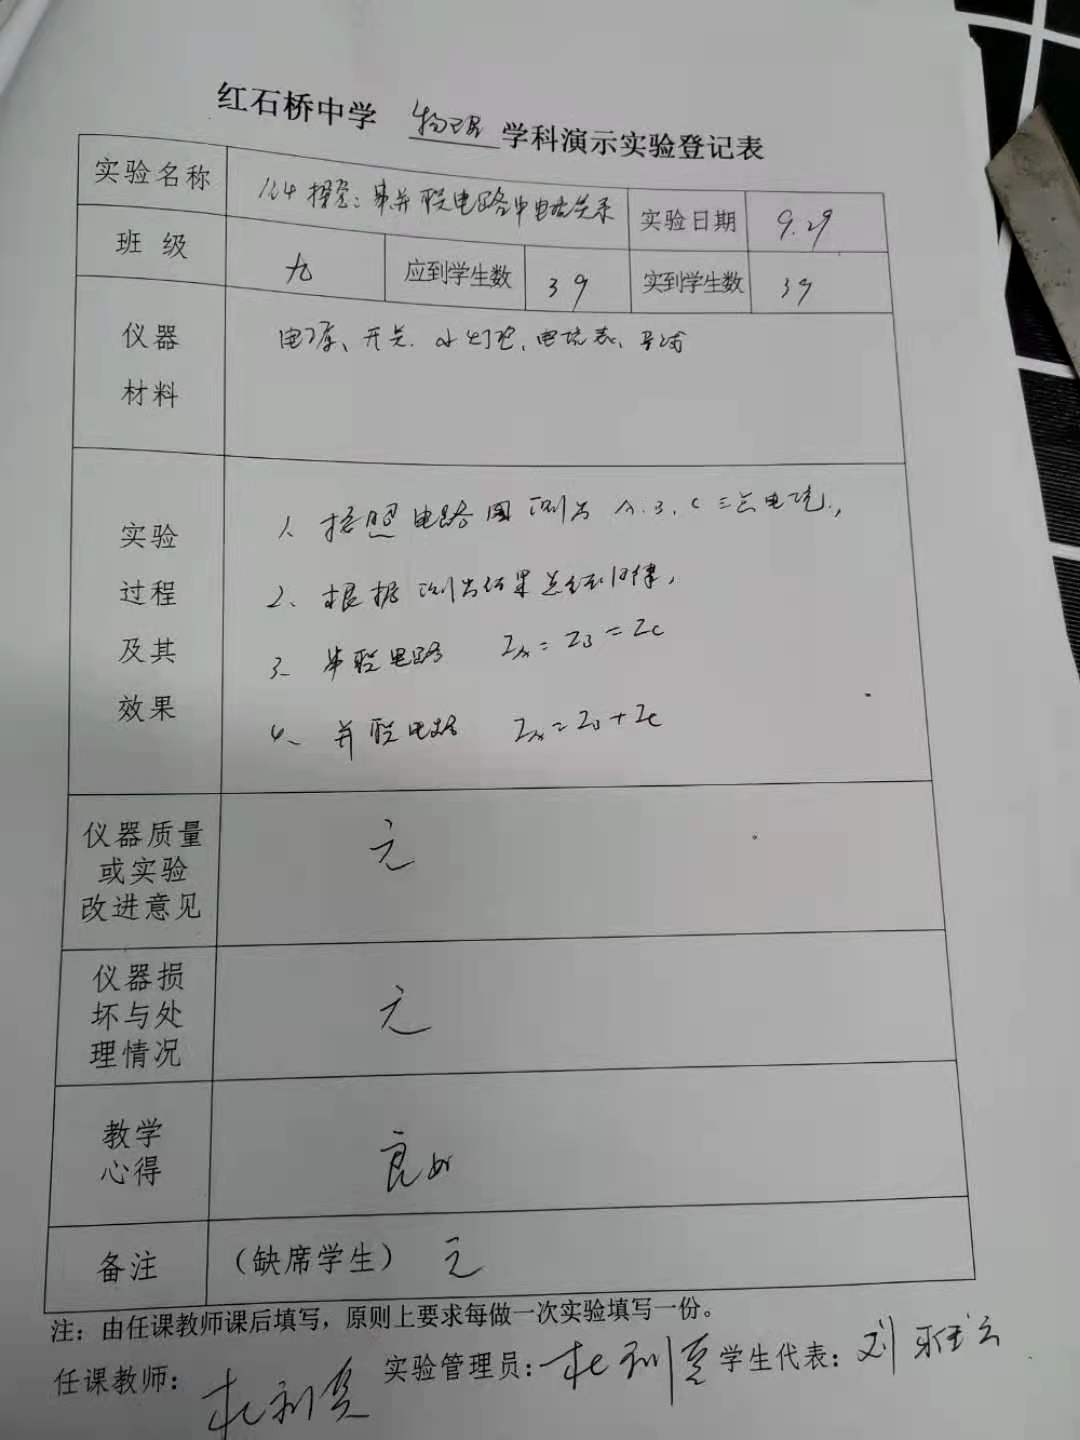 红石桥中学 物理 学科演示实验登记表
实验名称 探究:串并联电路中电流关系 实验日期 9.29
班 级 九 应到学生数 39 实到学生数 39
仪器
材料
电源、开关、小灯泡、电流表、导线
实验
过程
及其
效果
1、按照电路图测出A.B.C三点电流,
2、根据测出结果总结规律,
3、串联电路 IA=IB=IC
4、并联电路 IA=IB+IC
仪器质量
或实验
改进意见
无
仪器损
坏与处
理情况
无
教学
心得
良好
备注 (缺席学生) 无
注:由任课教师课后填写,原则上要求每做一次实验填写一份。
任课教师: 实验管理员: 学生代表:刘